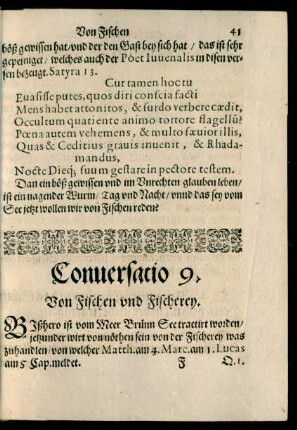 Von Fischen 41
böß gewissen hat/vnd der den Gast bey sich hat / das ist sehr
gepeiniget / welches auch der Poet Iuuenalis in disen ver-
sen bezeugt. Satyra 13.
Cur tamen hoc tu
Euasisse putes, quos diri conscia facti
Mens habet attonitos, & surdo verbere cædit,
Occultum quatiente animo tortore flagellũ?
Pœna autem vehemens, & multo sæuior illis,
Quas & Ceditius grauis inuenit, & Rhada-
mandus,
Nocte Dieq́; suum gestare in pectore testem.
Dan ein böß gewissen vnd im Vnrechten glauben leben/
ist ein nagender Wurm / Tag vnd Nacht / vnnd das sey vom
See jetzt wollen wir von Fischen reden?
Conuersatio 9.
Von Fischen vnd Fischerey.
BIßhero ist vom Meer Brünn See tractirt worden/
jetzunder wirt von nöthen sein von der Fischerey was
zuhandlen/ von welcher Matth. am 4. Marc. am 1. Lucas
am 5 Cap. meldet. F Q.1.